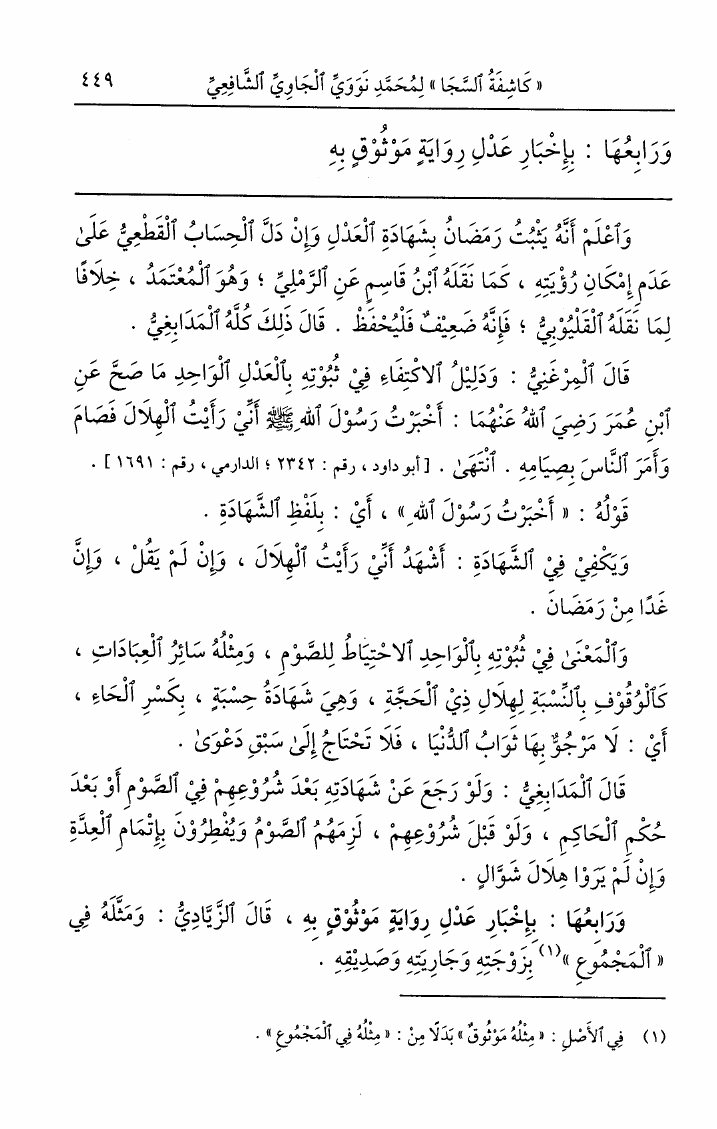 « كَاشِفَةُ ٱلسَّجَا » لِمُحَمَّدِ نَوَوَيِّ ٱلْجَاوِيِّ ٱلشَّافِعِيِّ ٤٤٩
وَرَابِعُهَا : بِإِخْبَارِ عَدْلِ رِوَايَةٍ مَوْثُوْقٍ بِهِ
وَٱعْلَمْ أَنَّهُ يَثْبُتُ رَمَضَانُ بِشَهَادَةِ ٱلْعَدْلِ وَإِنْ دَلَّ ٱلْحِسَابُ ٱلْقَطْعِيُّ عَلَىٰ
عَدَمِ إِمْكَانِ رُؤْيَتِهِ ، كَمَا نَقَلَهُ ٱبْنُ قَاسِمٍ عَنِ ٱلرَّمْلِيِّ ؛ وَهُوَ ٱلْمُعْتَمَدُ ، خِلَافًا
لِمَا نَقَلَهُ ٱلْقَلْيُوْبِيُّ ؛ فَإِنَّهُ ضَعِيْفٌ فَلْيُحْفَظْ . قَالَ ذَلِكَ كُلَّهُ ٱلْمَدَابِغِيُّ .
قَالَ ٱلْمِرْغَنِيُّ : وَدَلِيْلُ ٱلاكْتِفَاءِ فِيْ ثُبُوْتِهِ بِٱلْعَدْلِ ٱلْوَاحِدِ مَا صَحَّ عَنِ
ٱبْنِ عُمَرَ رَضِيَ ٱللهُ عَنْهُمَا : أَخْبَرْتُ رَسُوْلَ ٱللهِ ﷺ أَنِّيْ رَأَيْتُ ٱلْهِلَالَ فَصَامَ
وَأَمَرَ ٱلنَّاسَ بِصِيَامِهِ . ٱنْتَهَىٰ . [أبو داود ، رقم : ٢٣٤٢ ؛ الدارمي ، رقم : ١٦٩١ ] .
قَوْلُهُ : « أَخْبَرْتُ رَسُوْلَ ٱللهِ » ، أَيْ : بِلَفْظِ ٱلشَّهَادَةِ .
وَيَكْفِيْ فِيْ ٱلشَّهَادَةِ : أَشْهَدُ أَنِّيْ رَأَيْتُ ٱلْهِلَالَ ، وَإِنْ لَمْ يَقُلْ ، وَإِنَّ
غَدًا مِنْ رَمَضَانَ .
وَٱلْمَعْنَىٰ فِيْ ثُبُوْتِهِ بِٱلْوَاحِدِ ٱلاحْتِيَاطُ لِلصَّوْمِ ، وَمِثْلُهُ سَائِرُ ٱلْعِبَادَاتِ ،
كَٱلْوُقُوْفِ بِٱلنِّسْبَةِ لِهِلَالِ ذِيْ ٱلْحَجَّةِ ، وَهِيَ شَهَادَةُ حِسْبَةٍ ، بِكَسْرِ ٱلْحَاءِ ،
أَيْ : لَا مَرْجُوٌّ بِهَا ثَوَابُ ٱلدُّنْيَا ، فَلَا تَحْتَاجُ إِلَىٰ سَبْقِ دَعْوَىٰ .
قَالَ ٱلْمَدَابِغِيُّ : وَلَوْ رَجَعَ عَنْ شَهَادَتِهِ بَعْدَ شُرُوْعِهِمْ فِيْ ٱلصَّوْمِ أَوْ بَعْدَ
حُكْمِ ٱلْحَاكِمِ ، وَلَوْ قَبْلَ شُرُوْعِهِمْ ، لَزِمَهُمُ ٱلصَّوْمُ وَيُفْطِرُوْنَ بِإِتْمَامِ ٱلْعِدَّةِ
وَإِنْ لَمْ يَرَوْا هِلَالَ شَوَّالٍ .
وَرَابِعُهَا : بِإِخْبَارِ عَدْلِ رِوَايَةٍ مَوْثُوْقٍ بِهِ ، قَالَ ٱلزَّيَّادِيُّ : وَمَثَّلَهُ فِي
« ٱلْمَجْمُوعِ »(١) بِزَوْجَتِهِ وَجَارِيَتِهِ وَصَدِيْقِهِ .
(١) فِي ٱلأَصْلِ : « مِثْلُهُ مَوْثُوقٌ » بَدَلًا مِنْ : « مِثْلُهُ فِي ٱلْمَجْمُوعِ » .